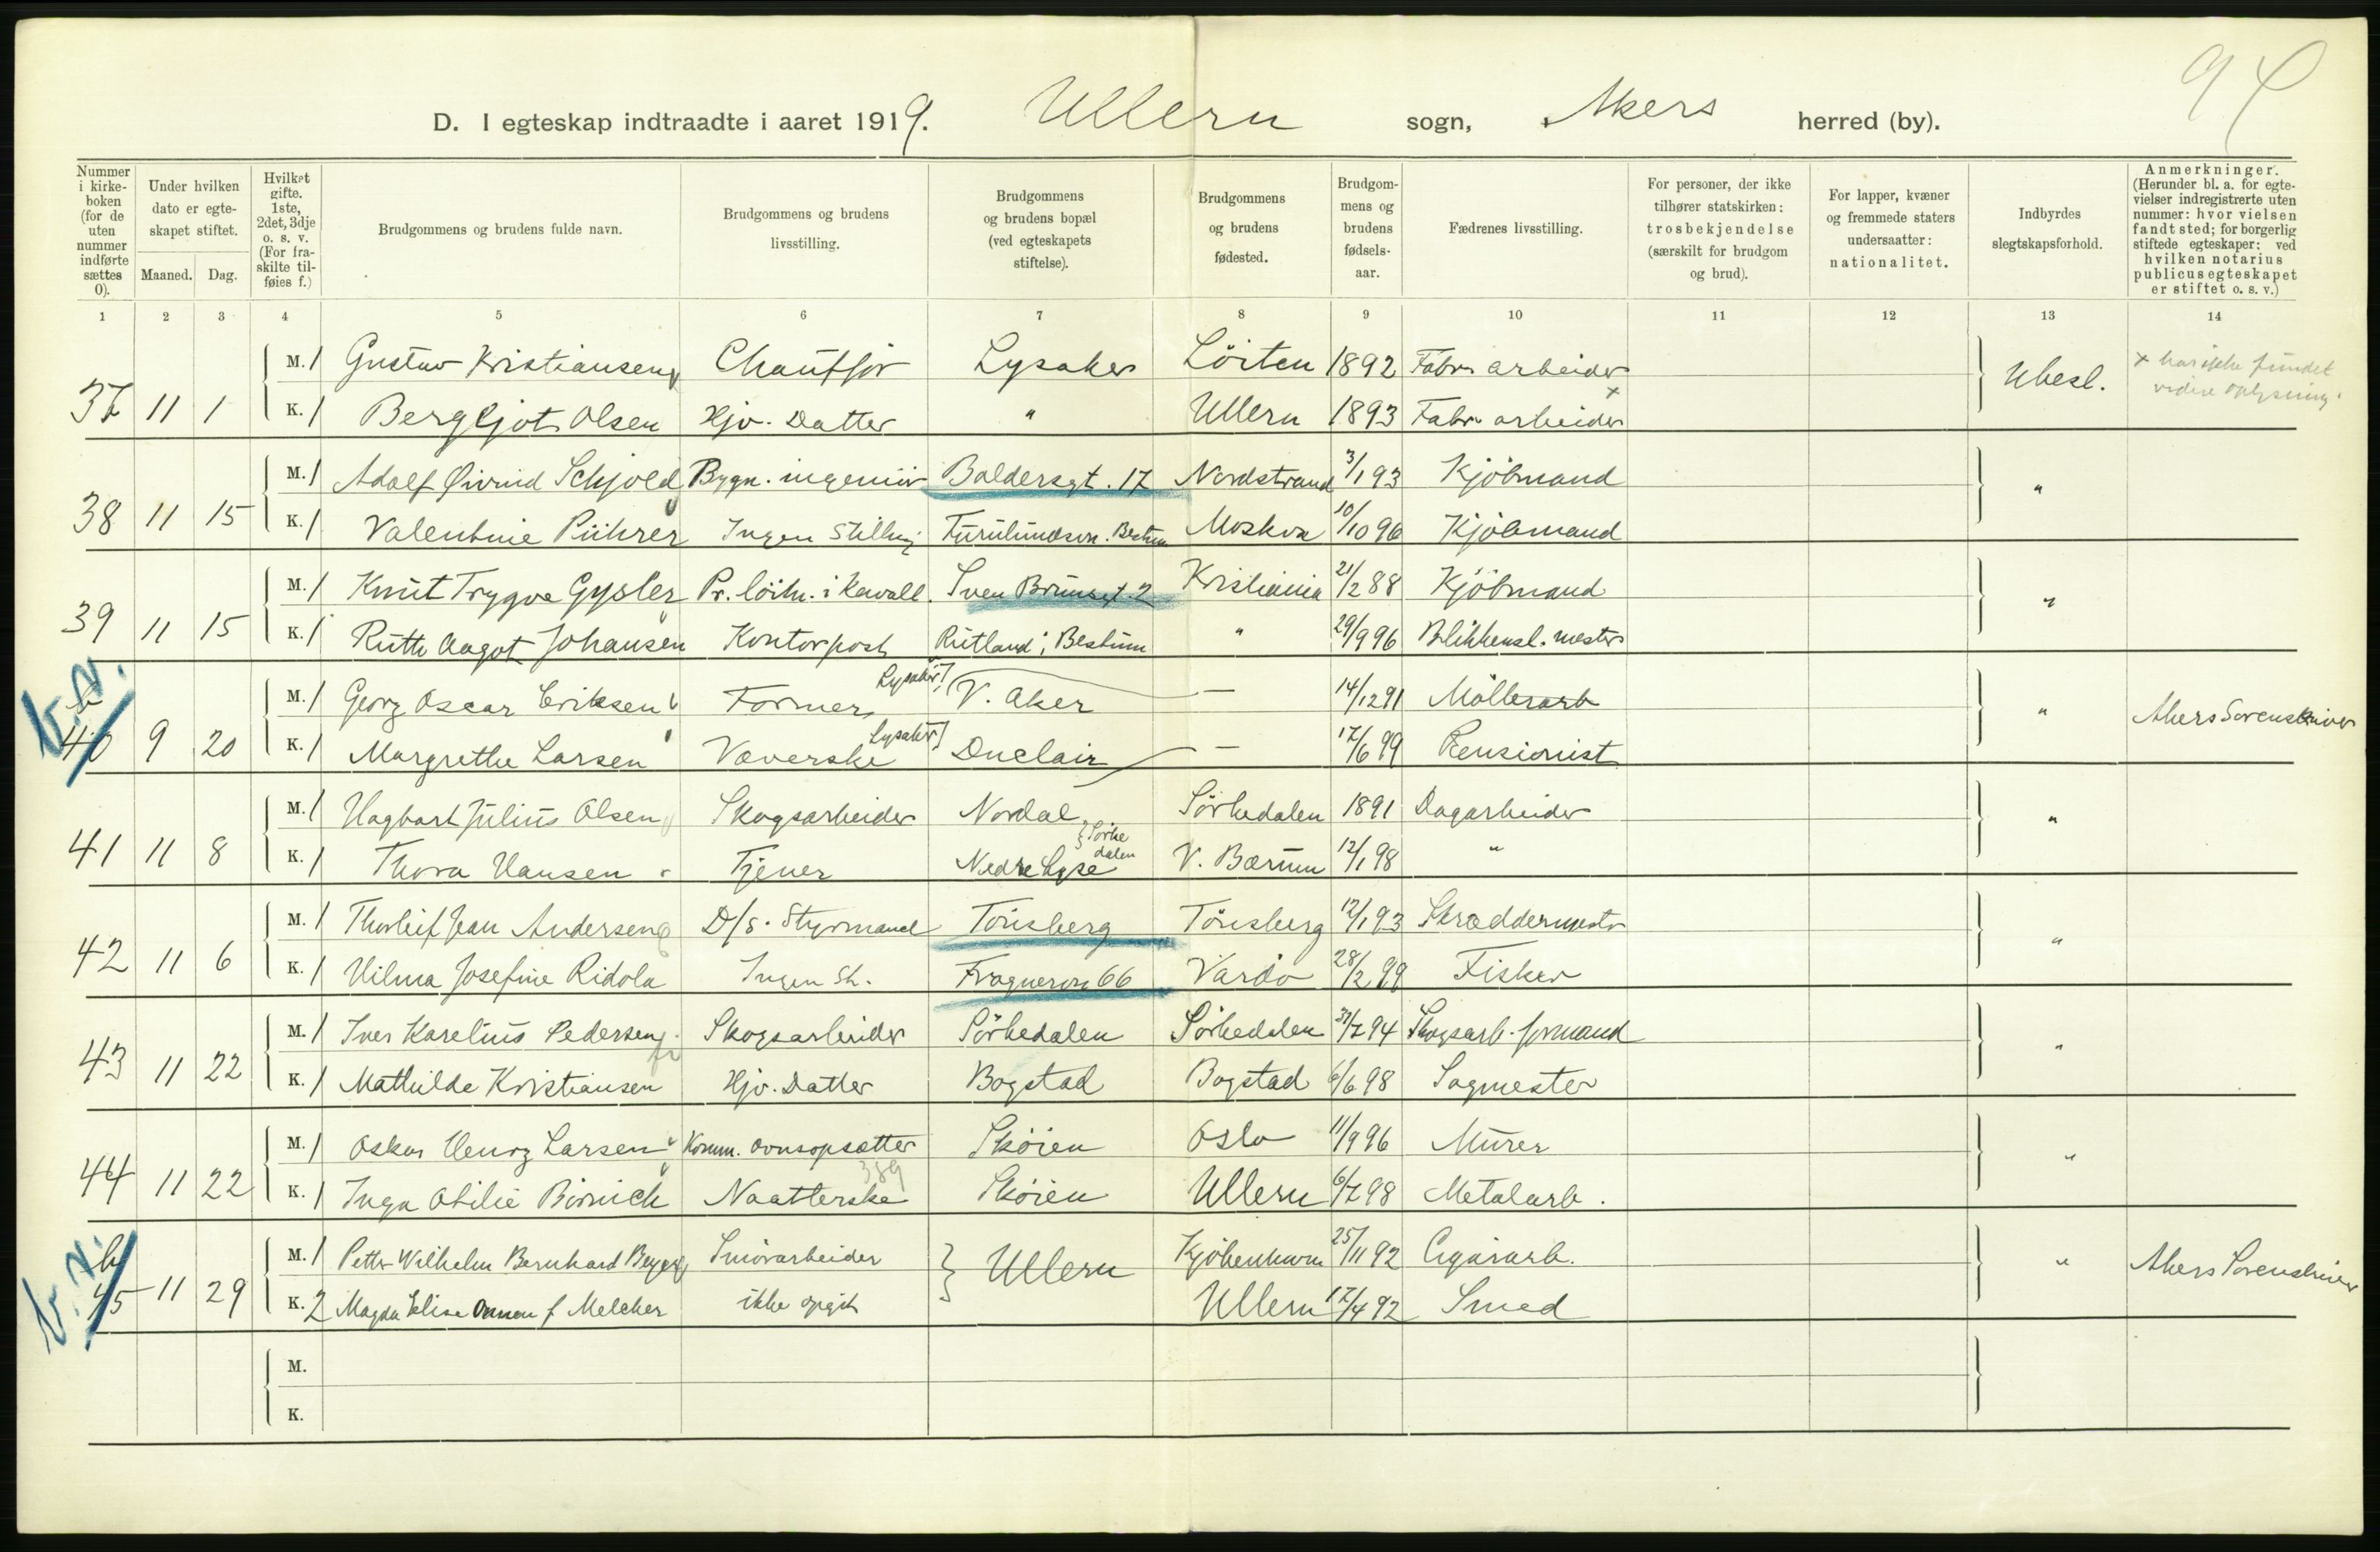 94
D. I egteskap indtraadte i aaret 1919. Ullern sogn, Akers herred (by).
Nummer i kirke-boken (for de uten nummer indførte sættes 0).
Under hvilken dato er egte-skapet stiftet.
Maaned. Dag.
Hvilket gifte. 1ste, 2det, 3dje o. s. v. (For fra-skilte til-føies f.)
Brudgommens og brudens fulde navn.
Brudgommens og brudens livsstilling.
Brudgommens og brudens bopæl (ved egteskapets stiftelse).
Brudgommens og brudens fødested.
Brudgom-mens og brudens fødsels-aar.
Fædrenes livsstilling.
For personer, der ikke tilhører statskirken: trosbekjendelse (særskilt for brudgom og brud).
For lapper, kvæner og fremmede staters undersaatter: nationalitet.
Indbyrdes slegtskapsforhold.
Anmerkninger. (Herunder bl. a. for egte-vielser indregistrerte uten nummer: hvor vielsen fandt sted; for borgerlig stiftede egteskaper: ved hvilken notarius publicus egteskapet er stiftet o. s. v.)
1 2 3 4 5 6 7 8 9 10 11 12 13 14
M. 1 Gustav Kristiansen Chauffør Lysaker Löiten 1892 Fabr. arbeider
37 11 1 Ubesl. x har ikke fundet videre oplysning.
K. 1 Bergljot Olsen Hjv. Datter " Ullern 1893 Fabr. arbeider x
M. 1 Adolf Øivind Schjold Bygn. ingeniör Baldersgt. 17 Nordstrand 3/1 93 Kjöbmand
38 11 15 "
K. 1 Valentine Pührer Ingen Stilling Furulundsvn. Bestum Moskva 10/10 96 Kjöbmand
M. 1 Knut Trygve Gysler Pr. löitn. i Kavall. Sven Brunsgt. 2 Kristiania 21/2 88 Kjöbmand
39 11 15 "
K. 1 Ruth Aagot Johansen Kontorpost Rutland, Bestum " 29/9 96 Blikkensl. mester
b. v.
M. 1 Georg Oscar Eriksen Former Lysaker V. Aker — 14/12 91 Möllerarb
40 9 20 " Akers Sorenskriver
K. 1 Margrethe Larsen Væverske Lysaker Duclair — 17/6 99 Pensionist
M. 1 Hagbart Julius Olsen Skogsarbeider Nordal Sörkedalen 1891 Dagarbeider
41 11 8 Sörkedalen "
K. 1 Thora Hansen Tjener Nedre Lyse V. Bærum 12/1 98 "
M. 1 Thorleif Jean Andersen D/S. Styrmand Tönsberg Tönsberg 12/1 93 Skræddermester
42 11 6 "
K. 1 Hilma Josefine Ridola Ingen St. Frognervn 66 Vardö 28/2 99 Fisker
M. 1 Iver Karelius Pedersen Skogsarbeider Sörkedalen Sörkedalen 31/7 94 Skogsarb. formand
43 11 22 "
K. 1 Mathilde Kristiansen Hjv. Datter Bogstad Bogstad 6/6 98 Sagmester
M. 1 Oskar Henry Larsen Komm. ovnsopsætter Sköien Oslo 11/9 96 Murer
44 11 22 389 "
K. 1 Inga Otilie Börnick Naatlerske Sköien Ullern 6/7 98 Metalarb.
b. v.
M. 1 Petter Wilhelm Bernhard Beyer Smörarbeider Kjöbenhavn 25/11 92 Cigararb.
45 11 29 Ullern " Akers Sorenskriver
K. 2 Magda Elise Onmen f Melcher ikke opgit Ullern 17/4 92 Smed
M.
K.